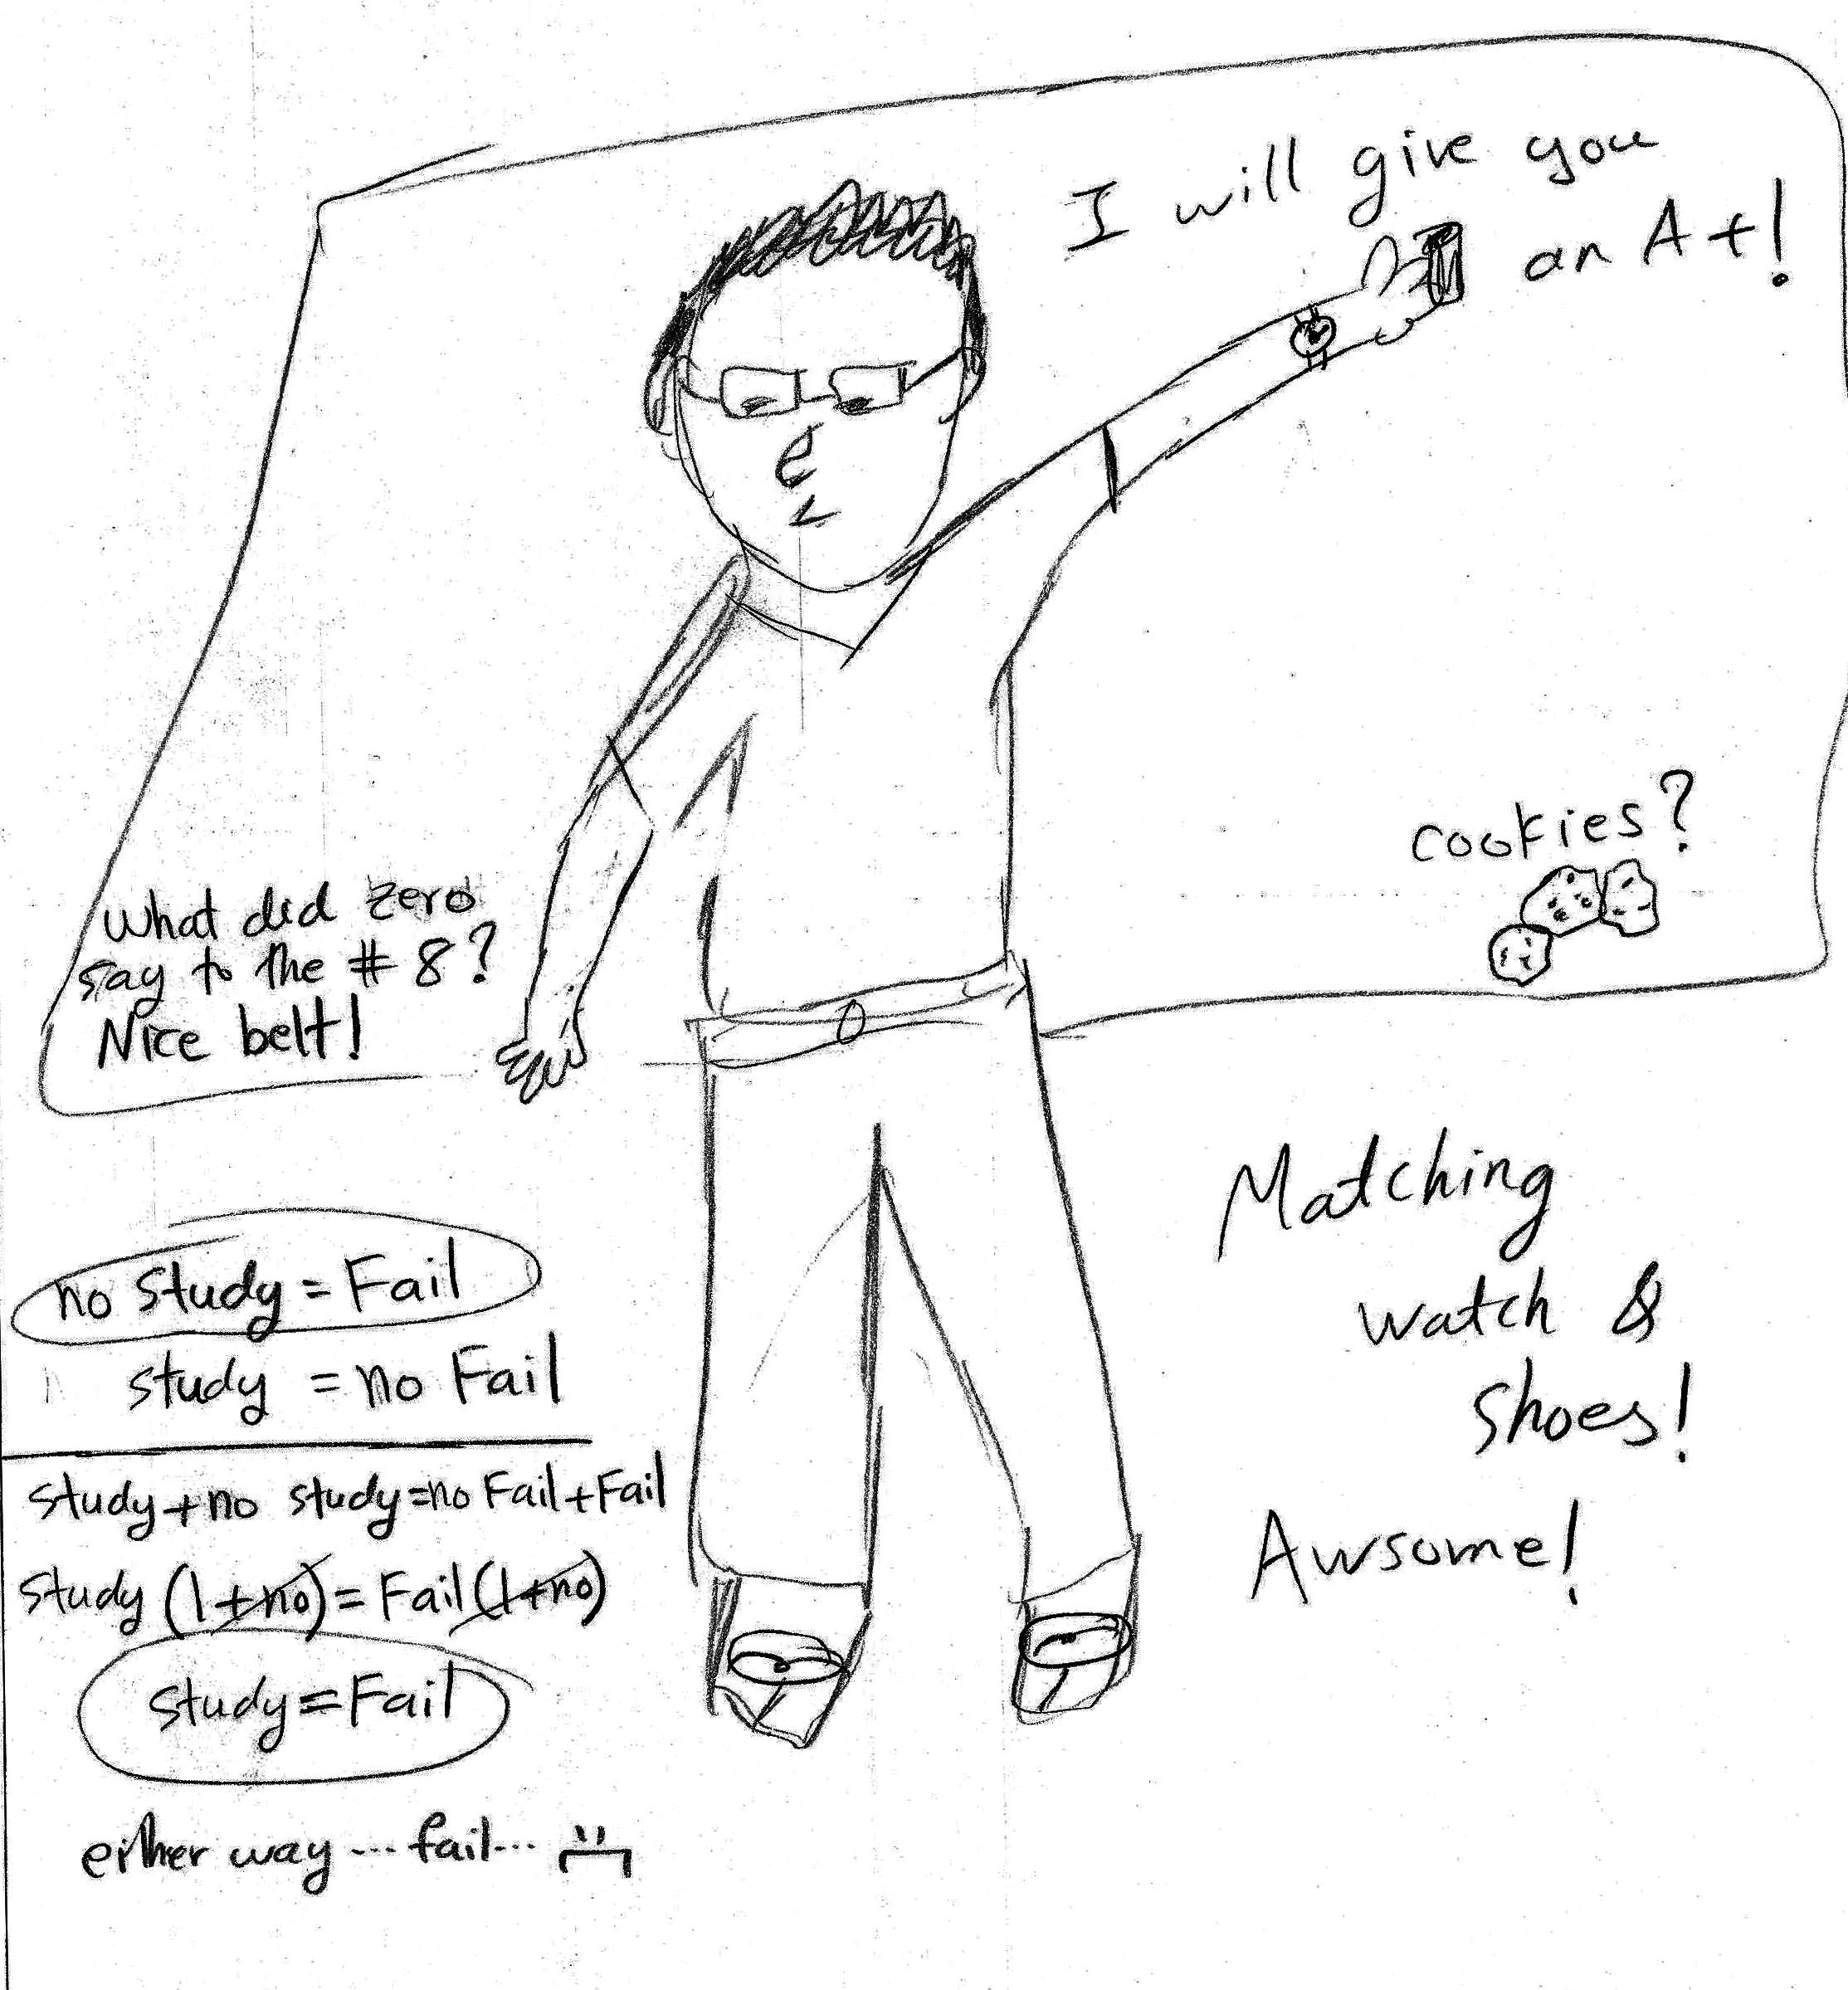 I will give you
an A+!
cookies?
What did zero
say to the # 8?
Nice belt!
no study = Fail
study = no Fail
study + no study = no Fail + Fail
study (1+no) = Fail (1+no)
study = Fail
either way ... fail...
Matching
watch &
shoes!
Awsome!